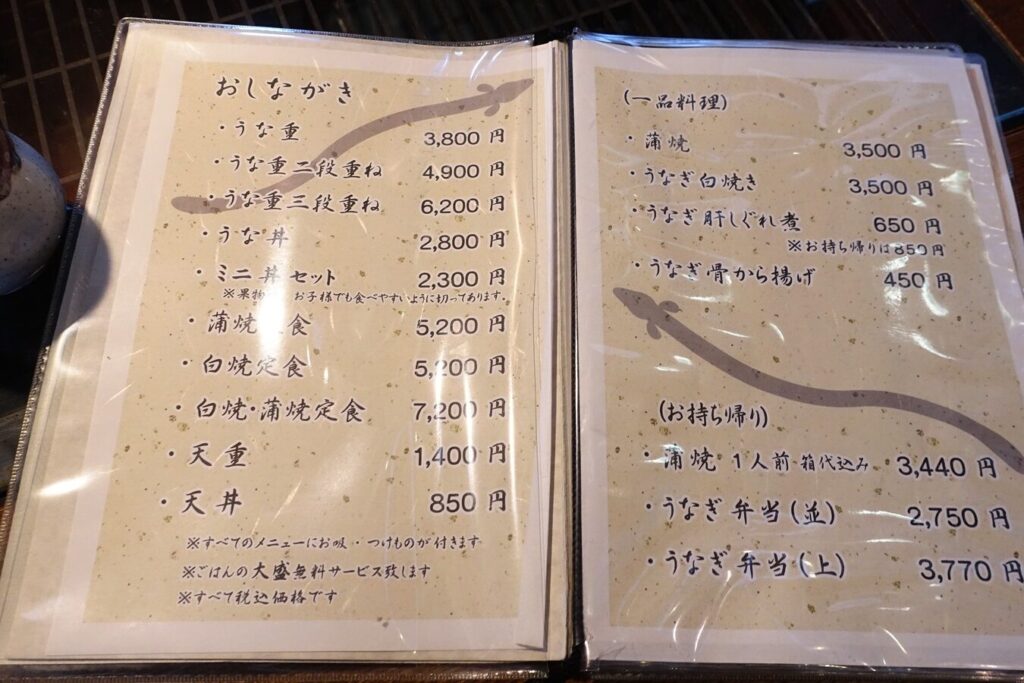 おしながき
・うな重 3,800 円
・うな重二段重ね 4,900 円
・うな重三段重ね 6,200 円
・うな丼 2,800 円
・ミニ丼セット 2,300 円
※果物 お子様でも食べやすいように切ってあります。
・蒲焼定食 5,200 円
・白焼定食 5,200 円
・白焼・蒲焼定食 7,200 円
・天重 1,400 円
・天丼 850 円
※すべてのメニューにお吸 ・つけものが付きます
※ごはんの大盛無料サービス致します
※すべて税込価格です
(一品料理)
・蒲焼 3,500 円
・うなぎ白焼き 3,500 円
・うなぎ肝しぐれ煮 650 円
※お持ち帰りは850円
・うなぎ骨から揚げ 450 円
(お持ち帰り)
・蒲焼 1人前・箱代込み 3,440 円
・うなぎ弁当(並) 2,750 円
・うなぎ弁当(上) 3,770 円